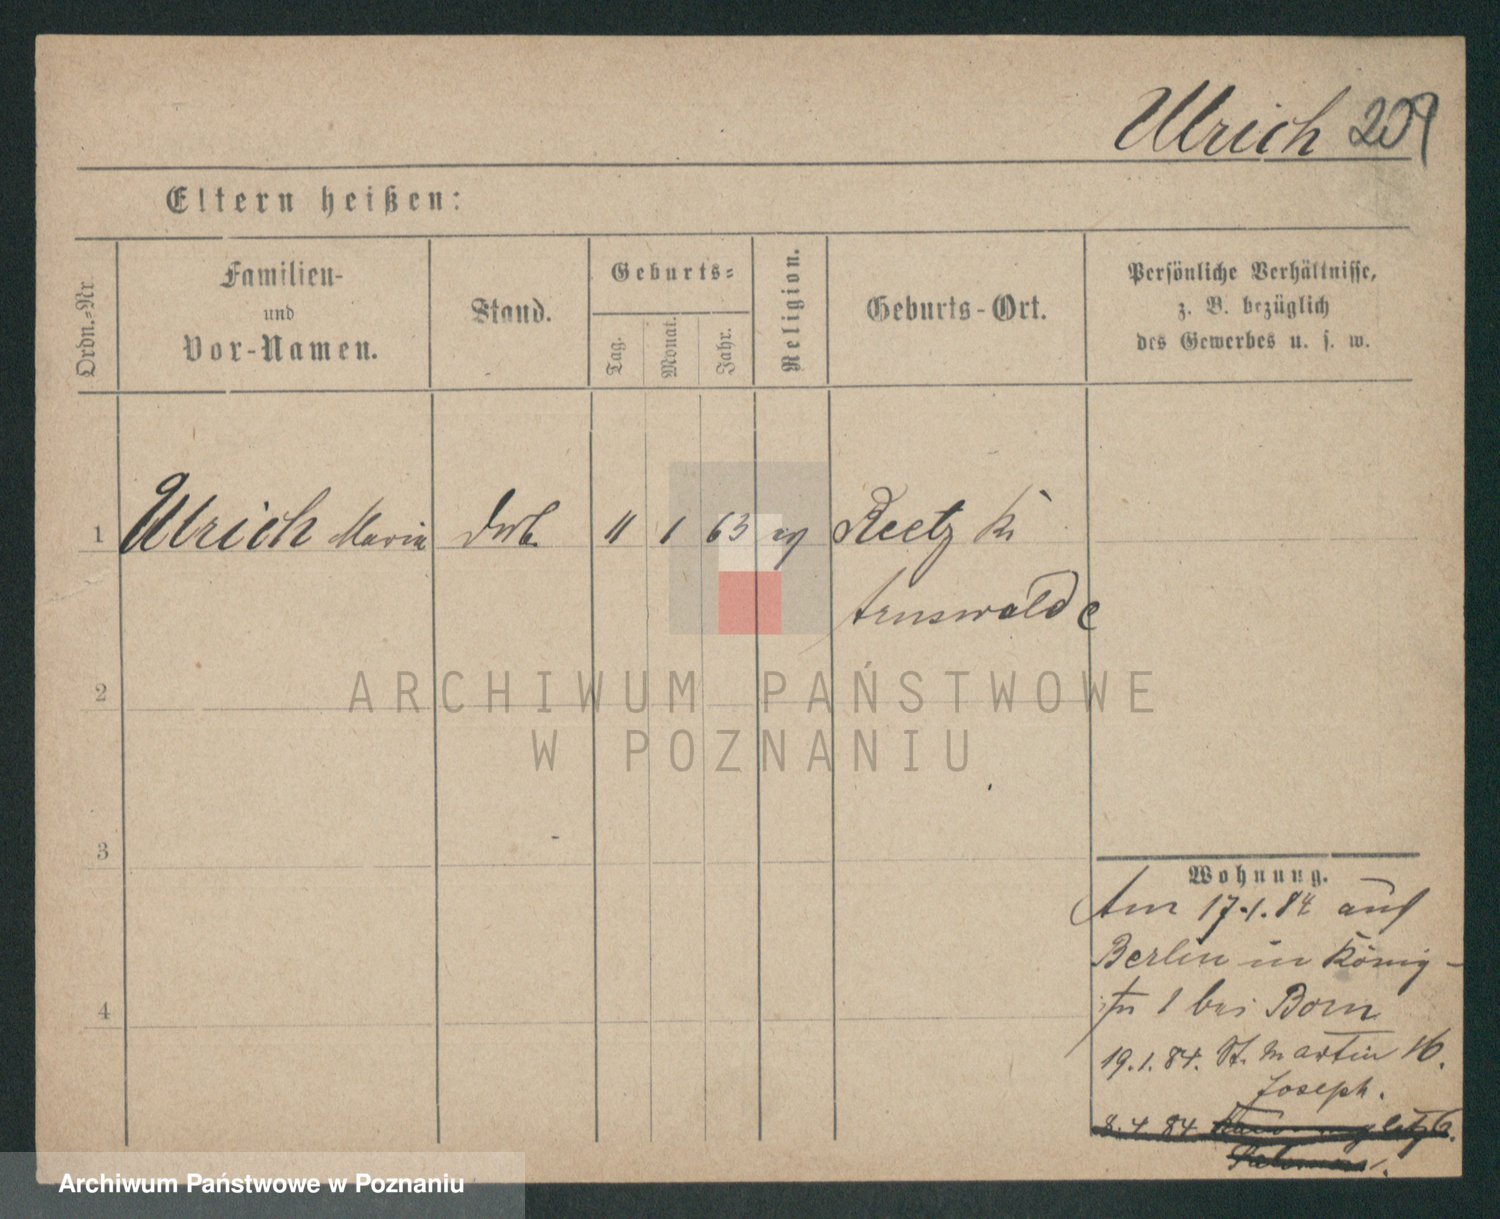 Ulrich 209
Eltern heißen:
Ordn.-Nr
Familien-
und
Vor-Namen.
Stand.
Geburts-
Tag.
Monat.
Jahr.
Religion.
Geburts-Ort.
Persönliche Verhältnisse,
z. B. bezüglich
des Gewerbes u. s. w.
1 Ulrich Maria 11 1 63 Reetz Kr
Arnswalde
2
ARCHIWUM PAŃSTWOWE
W POZNANIU
3
4
Wohnung.
Am 17.1.84 aus
Berlin in König-
str 1 bei Born
19.1.84. St. Martin 16.
Joseph.
8.4.84
Archiwum Państwowe w Poznaniu